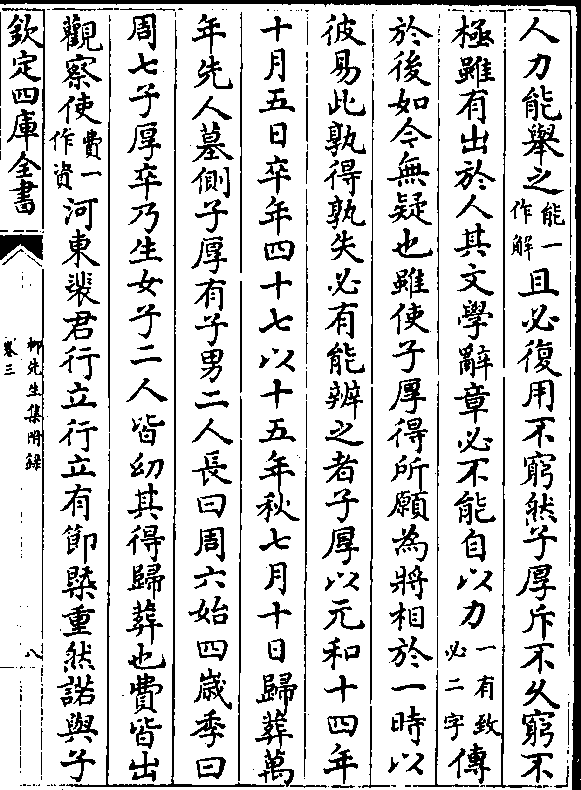 人力能舉之能一作解且必復用不窮然子厚斥不久窮不
極雖有出於人其文學辭章必不能自以力一有致必二字傳
於後如今無疑也雖使子厚得所願為將相於一時以
彼易此孰得孰失必有能辨之者子厚以元和十四年
十月五日卒年四十七以十五年秋七月十日歸葬萬
年先人墓側子厚有子男二人長曰周六始四歲季曰
周七子厚卒乃生女子二人皆幼其得歸葬也費皆出
觀察使費一作資河東裴君行立行立有節槩重然諾與子
欽定四庫全書
柳先生集附錄
卷三
八